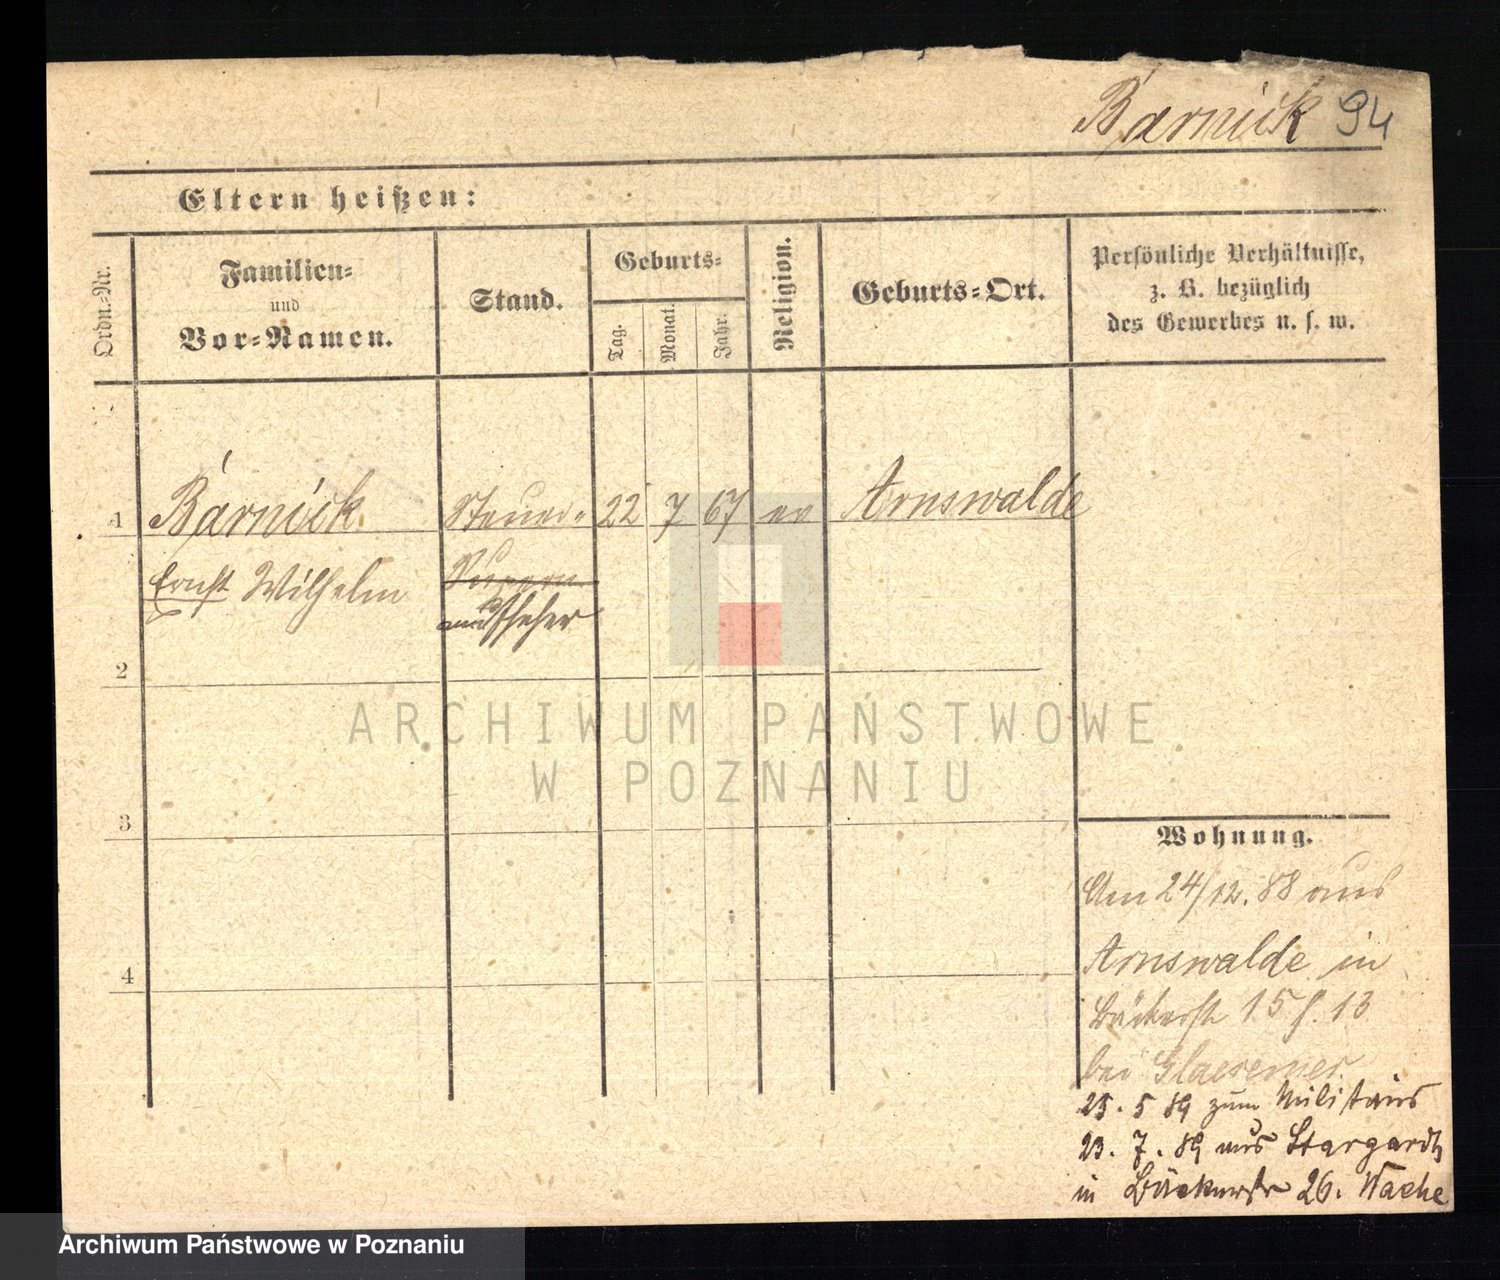 Barnick 94
Eltern heißen:
Ordn.-Nr.
Familien-
und
Vor-Namen.
Stand.
Geburts-
Tag.
Monat.
Jahr.
Religion.
Geburts-Ort.
Persönliche Verhältnisse,
z. B. bezüglich
des Gewerbes u. s. w.
1 Barnick Steuer- 22 7 67 ev Arnswalde
Ernst Wilhelm
aufseher
2
3
4
Wohnung.
Am 24/12. 88 aus
Arnswalde in
Bäckerstr 15 13
bei
25. 5 89 zum Militair
23. 7. 89 aus Stargardt
in Bäckerstr 26. Wache
ARCHIWUM PAŃSTWOWE
W POZNANIU
Archiwum Państwowe w Poznaniu